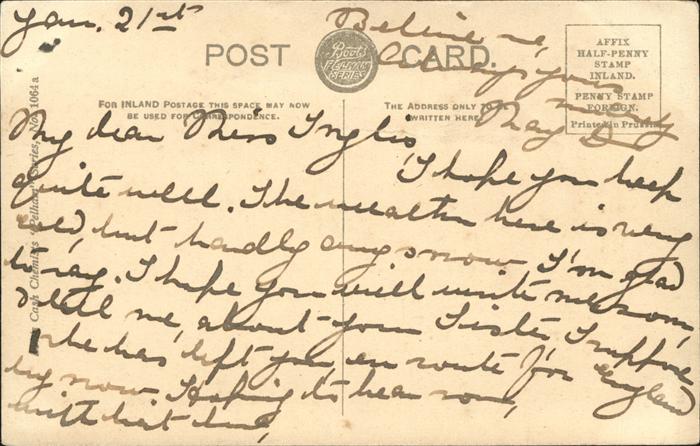 Jan. 21st
POST CARD.
Boots
PELHAM
SERIES
AFFIX
HALF-PENNY
STAMP
INLAND.
PENNY STAMP
FOREIGN.
Printed in Prussia
FOR INLAND POSTAGE THIS SPACE MAY NOW
BE USED FOR CORRESPONDENCE.
THE ADDRESS ONLY TO
WRITTEN HERE
Cash Chemists "Pelham" Series, No. 1064a
My dear Miss Inglis
I hope you keep
quite well. The weather here is very
cold, but hardly any snow I'm glad
to say. I hope you will write me soon,
& tell me, about your Sister, I suppose
she has left you, en route for England
by now. Hoping to hear soon,
with best love,
Believe me,
Always yours
May